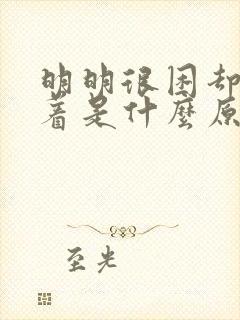 明明很困却
着是什麼原
至光